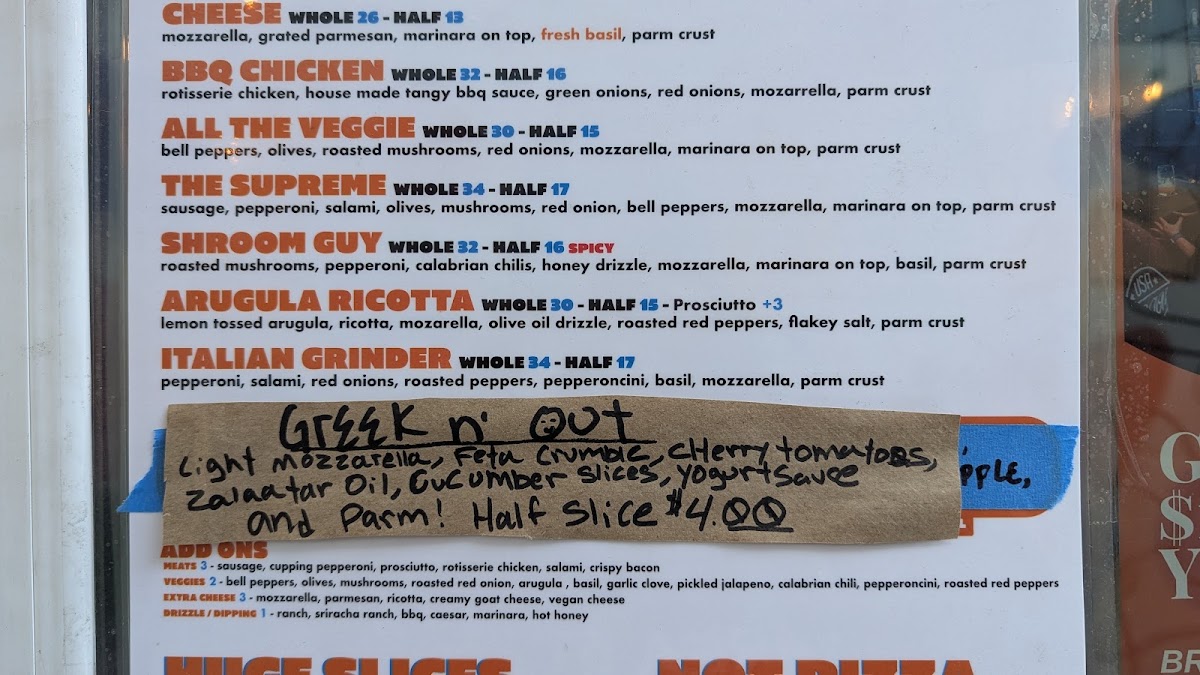 CHEESE WHOLE 26 - HALF 13
mozzarella, grated parmesan, marinara on top, fresh basil, parm crust
BBQ CHICKEN WHOLE 32 - HALF 16
rotisserie chicken, house made tangy bbq sauce, green onions, red onions, mozarrella, parm crust
ALL THE VEGGIE WHOLE 30 - HALF 15
bell peppers, olives, roasted mushrooms, red onions, mozzarella, marinara on top, parm crust
THE SUPREME WHOLE 34 - HALF 17
sausage, pepperoni, salami, olives, mushrooms, red onion, bell peppers, mozzarella, marinara on top, parm crust
SHROOM GUY WHOLE 32 - HALF 16 SPICY
roasted mushrooms, pepperoni, calabrian chilis, honey drizzle, mozzarella, marinara on top, basil, parm crust
ARUGULA RICOTTA WHOLE 30 - HALF 15 - Prosciutto +3
lemon tossed arugula, ricotta, mozarella, olive oil drizzle, roasted red peppers, flakey salt, parm crust
ITALIAN GRINDER WHOLE 34 - HALF 17
pepperoni, salami, red onions, roasted peppers, pepperoncini, basil, mozzarella, parm crust
GrEEK n' OUT
Light mozzarella, Feta Crumble, cHerry tomatoes,
Zalaatar Oil, CuCumber slices, yogurt sauce
and Parm! Half slice $4.00
PPLE,
ADD ONS
MEATS 3 - sausage, cupping pepperoni, prosciutto, rotisserie chicken, salami, crispy bacon
VEGGIES 2 - bell peppers, olives, mushrooms, roasted red onion, arugula , basil, garlic clove, pickled jalapeno, calabrian chili, pepperoncini, roasted red peppers
EXTRA CHEESE 3 - mozzarella, parmesan, ricotta, creamy goat cheese, vegan cheese
DRIZZLE / DIPPING 1 - ranch, sriracha ranch, bbq, caesar, marinara, hot honey
HUGE SLICES
NOT PIZZA
G
$
Y
BR
USA